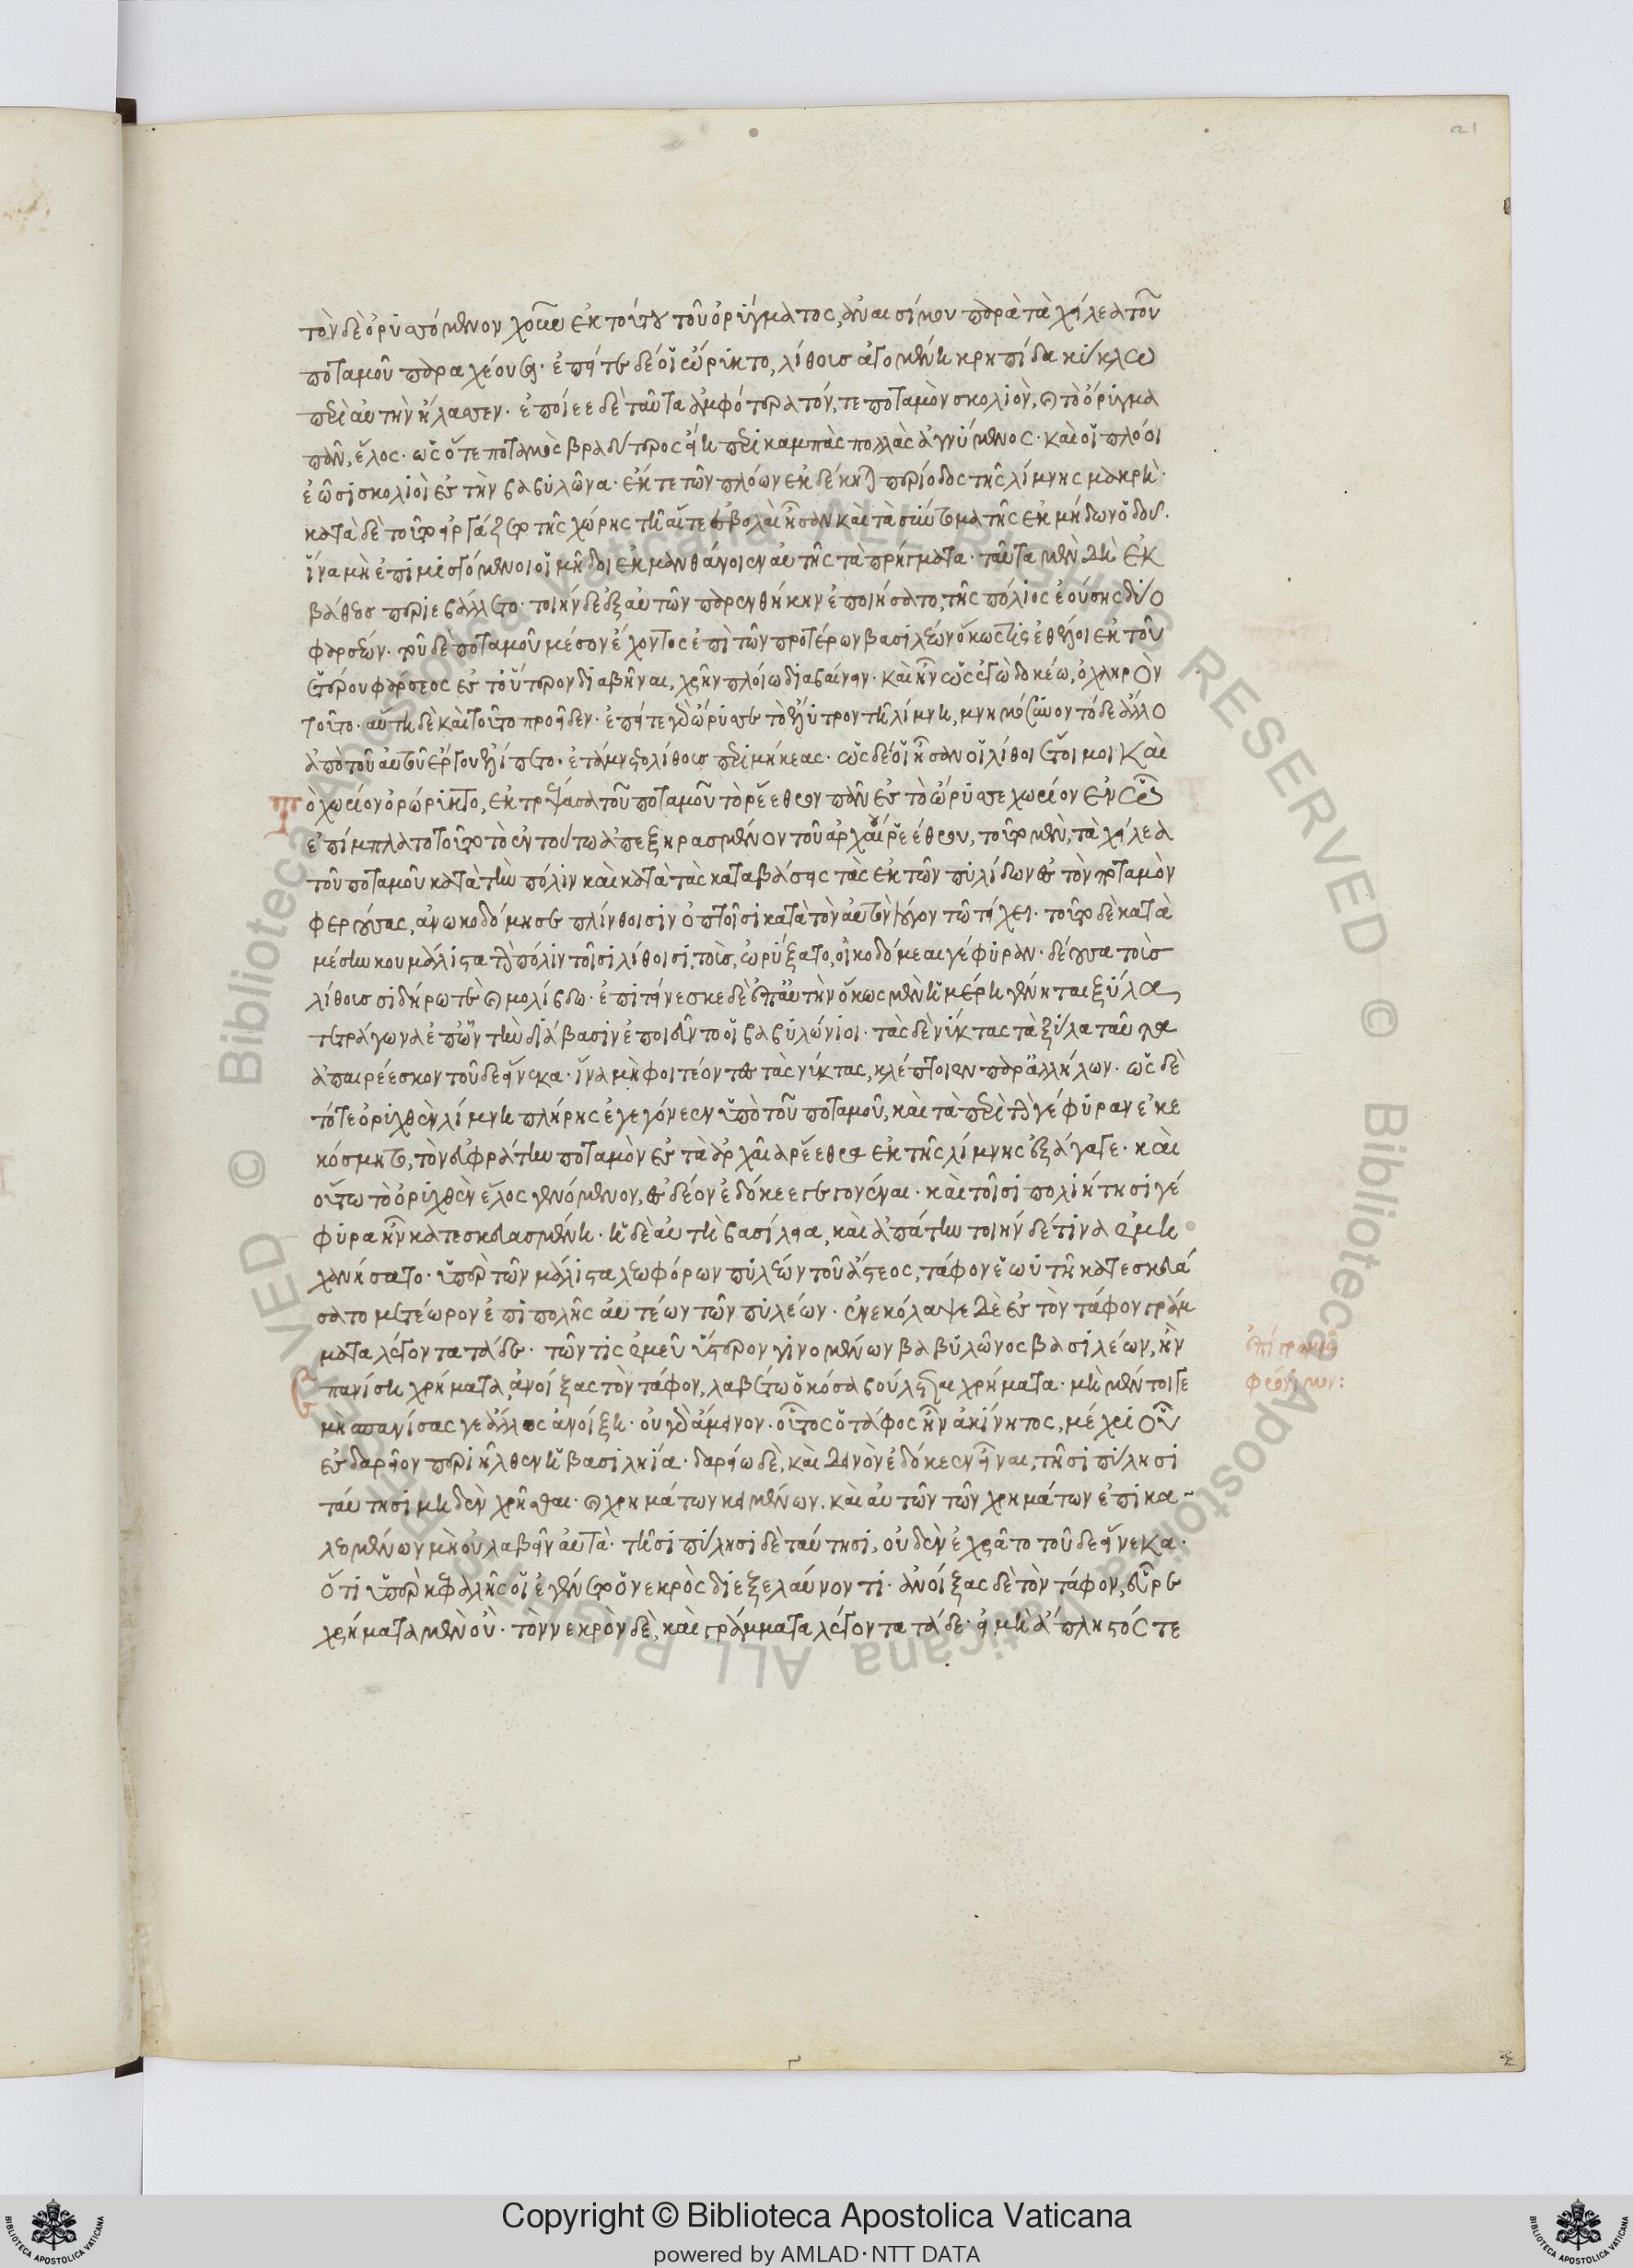 τὸν δὲ ὀρυσσόμενον χοῦν ἐκ τούτου τοῦ ὀρύγματος, ἀναισίμου παρὰ τὰ χείλεα τοῦ
ποταμοῦ παραχέουσα· ἐπείτε δέ οἱ ὤρυκτο, λίθους ἀγομένη κρηπῖδα κύκλω
περὶ αὐτὴν ἤλασσεν· ἐποίεε δὲ ταῦτα ἀμφότερα τόν, τε ποταμὸν σκολιὸν, καὶ τὸ ὄρυγμα
πᾶν, ἕλος· ὡς ὅ τε ποταμὸς βραδύτερος εἴη περὶ καμπὰς πολλὰς ἀγνύμενος· καὶ οἱ πλόοι
ἔωσι σκολιοὶ ἐς τὴν βαβυλῶνα· ἔκ τε τῶν πλόων ἐκδέκηται περίοδος τῆς λίμνης μακρὴ·
κατὰ δὲ τοῦτο εἰργάζετο τῆς χώρης τῆ αἵ τε ἐσβολαὶ ἦσαν καὶ τὰ σύντομα τῆς ἐκ μήδων ὁδοῦ·
ἵνα μὴ ἐπιμισγόμενοι οἱ μῆδοι ἐκμανθάνοιεν αὐτῆς τὰ πρήγματα· ταῦτα μὲν δὴ ἐκ
βάθεος περιεβάλετο· τοιήνδε δὲ ἐξ αὐτῶν παρενθήκην ἐποιήσατο, τῆς πόλιος ἐούσης δύο
φαρσέων· τοῦ δὲ ποταμοῦ μέσον ἔχοντος ἐπὶ τῶν προτέρων βασιλέων ὅκως τις ἐθέλοι ἐκ τοῦ
ἑτέρου φάρσεος ἐς τοὔτερον διαβῆναι, χρῆν πλοίω διαβαίνειν· καὶ ἦν ὡς ἐγὼ δοκέω, ὀχληρὸν
τοῦτο· αὕτη δὲ καὶ τοῦτο προεῖδεν· ἐπείτε γὰρ ὤρυσσε τὸ ἔλυτρον τῆ λίμνη, μνημόσυνον τόδε ἄλλο
ἀπὸ τοῦ αὐτοῦ ἔργου ἐλίπετο· ἐτάμνετο λίθους περιμήκεας· ὡς δέ οἱ ἦσαν οἱ λίθοι ἕτοιμοι καὶ
τὸ χωρίον ὀρώρυκτο, ἐκτρέψασα τοῦ ποταμοῦ τὸ ῥέεθρον πᾶν ἐς τὸ ὤρυσσε χωρίον ἐν ᾧ
ἐπίμπλατο τοῦτο τὸ ἐν τούτω ἀπεξηρασμένον τοῦ ἀρχαίου ῥεέθρου, τοῦτο μὲν, τὰ χείλεα
τοῦ ποταμοῦ κατὰ τὴν πόλιν καὶ κατὰ τὰς καταβάσεις τὰς ἐκ τῶν πυλίδων ἐς τὸν ποταμὸν
φερούσας, ἀνωκοδόμησε πλίνθοισιν ὀπτῇσι κατὰ τὸν αὐτὸν λόγον τῶ τείχει· τοῦτο δὲ κατὰ
μέσην κου μάλιστα τὴν πόλιν τοῖσι λίθοισι, τοὺς, ὠρύξατο, οἰκοδόμεαι γέφυραν· δέουσα τοὺς
λίθους σιδήρω τε καὶ μολίβδω· ἐπιτείνεσκε δὲ ἐπ' αὐτὴν ὅκως μὲν ἡμέρη γένηται ξύλα
τετράγωνα ἐπ' ὧν τὴν διάβασιν ἐποιεῦντο οἱ βαβυλώνιοι· τὰς δὲ νύκτας τὰ ξύλα ταῦτα
ἀπαιρέεσκον τοῦδε εἵνεκα· ἵνα μὴ φοιτέοντες τὰς νύκτας, κλέπτοιεν παρ' ἀλλήλων· ὡς δὲ
τό τε ὀρυχθὲν λίμνη πλήρης ἐγεγόνεεν ὑπὸ τοῦ ποταμοῦ, καὶ τὰ περὶ τὴν γέφυραν ἐκε
κόσμητο, τὸν εὐφρήτην ποταμὸν ἐς τὰ ἀρχαῖα ῥέεθρα ἐκ τῆς λίμνης ἐξάγαγε· καὶ
οὕτω τὸ ὀρυχθὲν ἕλος γενόμενον, ἐς δέον ἐδόκεε γεγονέναι· καὶ τοῖσι πολιήτησι γέ
φυρα ἦν κατεσκευασμένη· ἡ δὲ αὐτὴ βασίλεια, καὶ ἀπάτην τοιήνδε τινὰ ἐμη
χανήσατο· ὑπὲρ τῶν μάλιστα λεωφόρων πυλέων τοῦ ἄστεος, τάφον ἑωυτῆ κατεσκευά
σατο μετέωρον ἐπιπολῆς αὐτέων τῶν πυλέων· ἐνεκόλαψε δὲ ἐς τὸν τάφον γράμ
ματα λέγοντα τάδε· τῶν τις ἐμεῦ ὕστερον γινομένων βαβυλῶνος βασιλέων, ἢν
σπανίση χρημάτων, ἀνοίξας τὸν τάφον, λαβέτω ὁκόσα βούλεται χρήματα· μὴ μέντοι γε
μὴ σπανίσας γε ἄλλως ἀνοίξη· οὐ γὰρ ἄμεινον· οὗτος ὁ τάφος ἦν ἀκίνητος, μέχρι οὗ
ἐς δαρεῖον περιῆλθεν ἡ βασιληίη· δαρείω δὲ, καὶ δεινὸν ἐδόκεεν εἶναι, τῆσι πύλησι
ταύτησι μηδὲν χρῆσθαι· καὶ χρημάτων κειμένων. καὶ αὐτῶν τῶν χρημάτων ἐπικα-
λεομένων μὴ οὐ λαβεῖν αὐτὰ· τῆσι πύλησι δὲ ταύτησι, οὐδὲν ἐχρᾶτο τοῦδε εἵνεκα·
ὅτι ὑπὲρ κεφαλῆς οἱ ἐγένετο ὁ νεκρὸς διεξελαύνοντι· ἀνοίξας δὲ τὸν τάφον, εὗρε
χρήματα μὲν οὐ· τὸν νεκρὸν δὲ, καὶ γράμματα λέγοντα τάδε· εἰ μὴ ἄπληστός τε